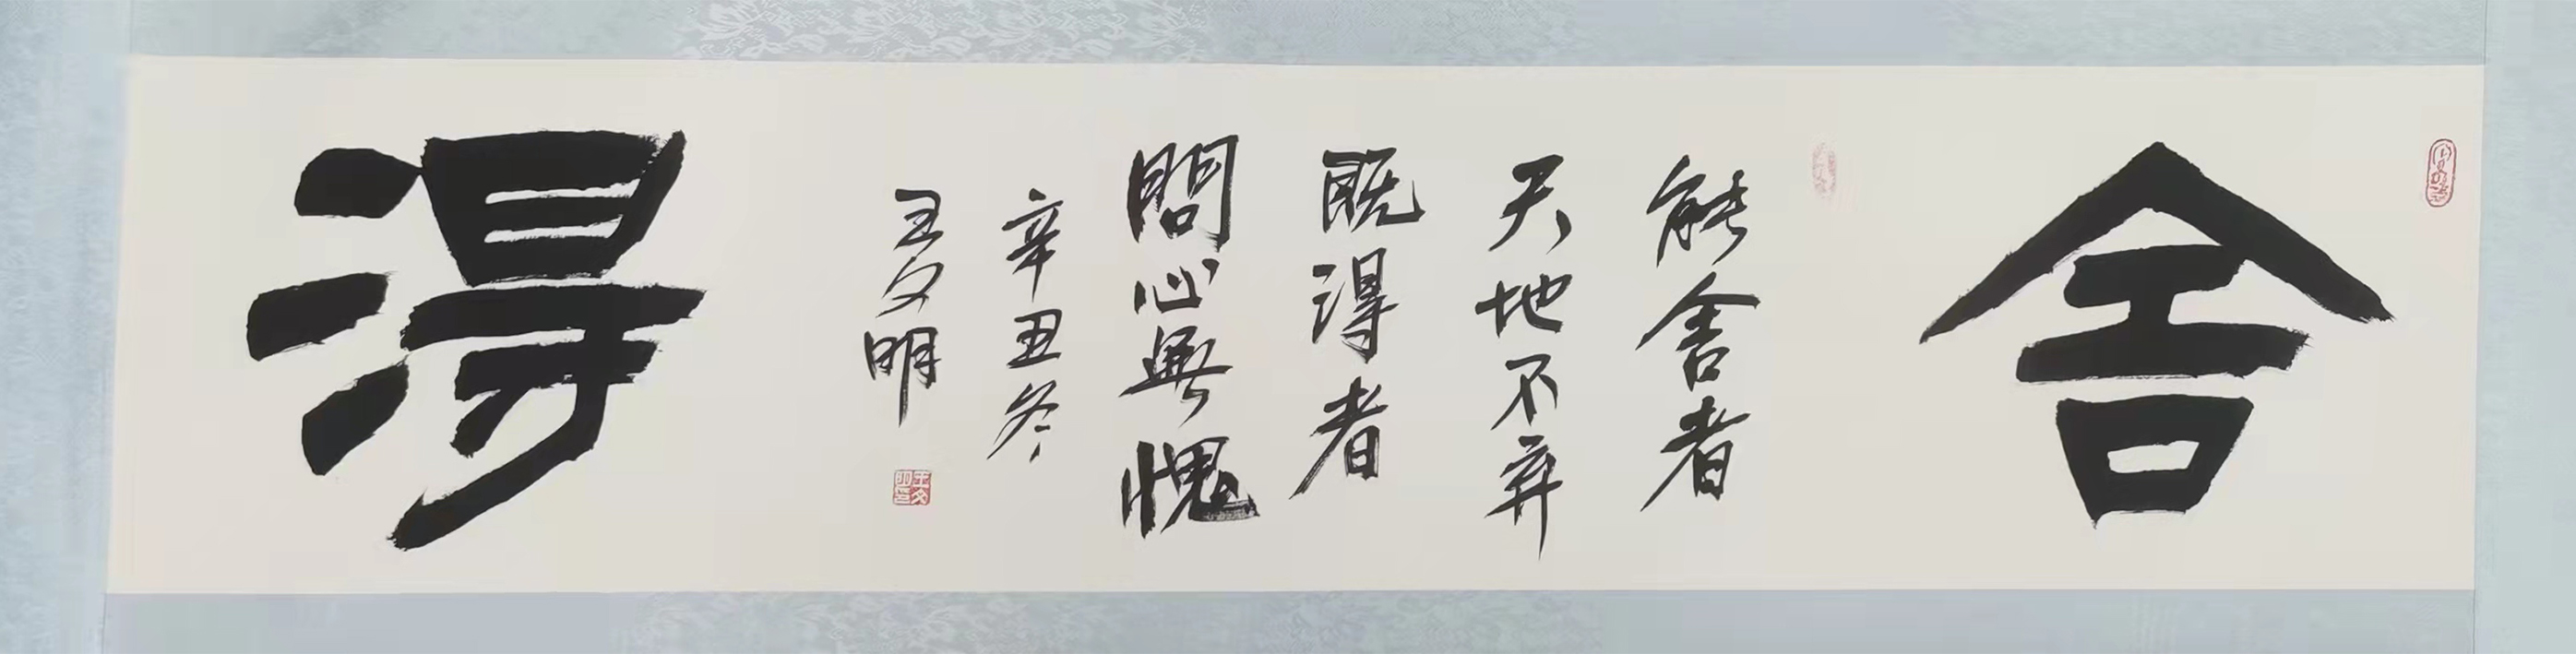 舍
能舍者
天地不弃
既得者
問心無愧
辛丑冬
王文明
得